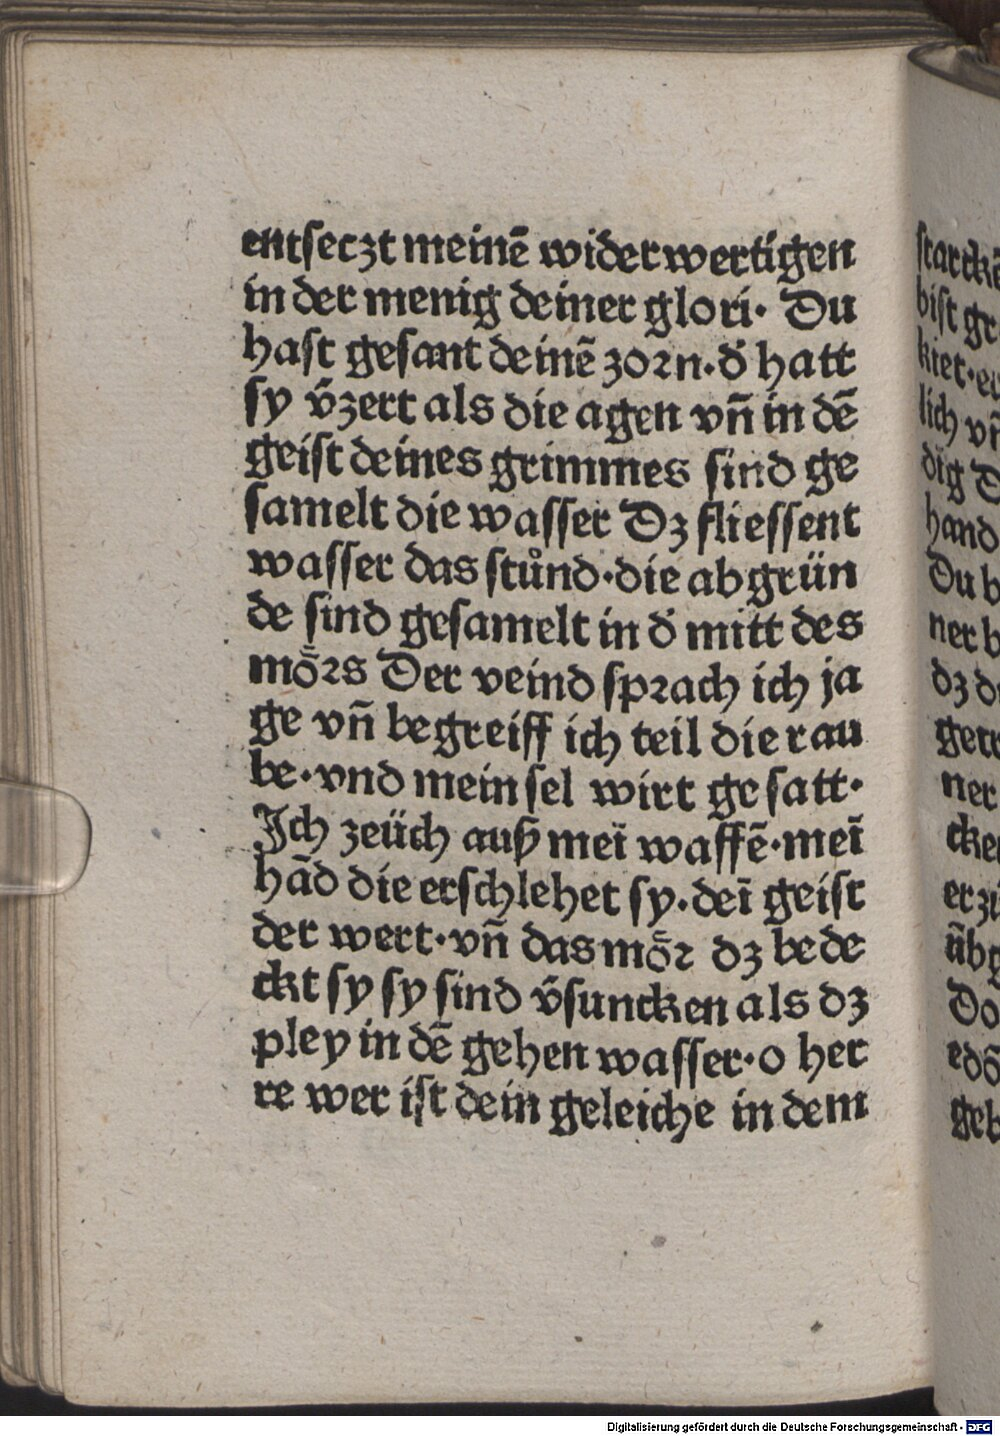 entseczt meinē widerwertigen
in der menig deiner glori· Du
hast gesant deinē zorn·d̕ hatt
sy v̕zert als die agen vn̄ in dē
geist deines grimmes sind ge
samelt die wasser Dz fliessent
wasser das stůnd·die abgrün
de sind gesamelt in d̕ mitt des
mȫrs Der veind sprach ich ja
ge vn̄ begreiff ich teil die rau
be·vnd mein sel wirt gesatt·
Ich zeüch auß meī waffē·meī
hād die erschlehet sy·deī geist
der wert·vn̄ das mȫr dz bede
ckt sy sy sind v̕suncken als dz
pley in dē gehen wasser·o her
re wer ist dein geleiche in dem
bist
lich
hand
Du
ner
dz
ner
Digitalisierung gefördert durch die Deutsche Forschungsgemeinschaft - DFG